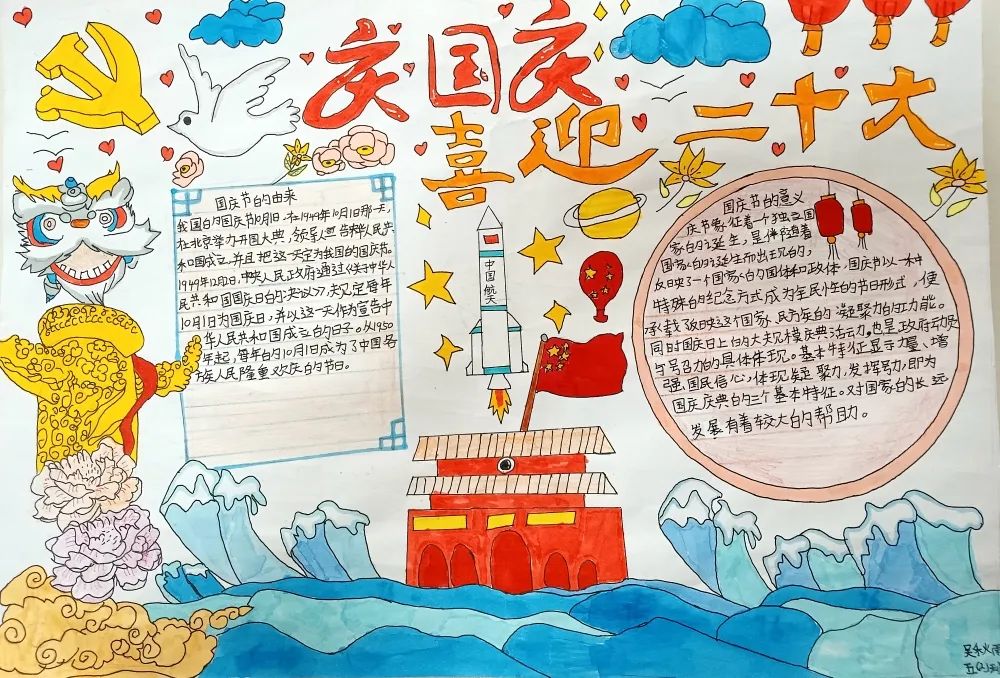 庆国庆
喜迎二十大
国庆节的由来
我国的国庆节10月1日,在1949年10月1日那一天,
在北京举力开国大典,领导人宣告中华人民共
和国成立,并且把这一天定为我国的国庆节。
1949年12月2日,中央人民政府通过《关于中华人
民共和国国庆日的决议》,规定每年
10月1日为国庆日,并以这一天作为宣告中
华人民共和国成立的日子。从1950
年起,每年的10月1日成为了中国各
族人民隆重欢庆的节日。
中国航天
国庆节的意义
国庆节象征着一个独立国
家的诞生,是伴随着
国家的诞生而出现的,
反映了一个国家的国体和政体,国庆节以一种
特殊的纪念方式成为全民性的节日形式,使
承载反映这个国家、民族的凝聚力的功能。
同时国庆日上的大规模庆典活动,也是政府动员
与号召力的具体体现。基本特征显示力量、增
强国民信心,体现凝聚力,发挥号召力,即为
国庆庆典的三个基本特征。对国家的长远
发展有着较大的帮助。